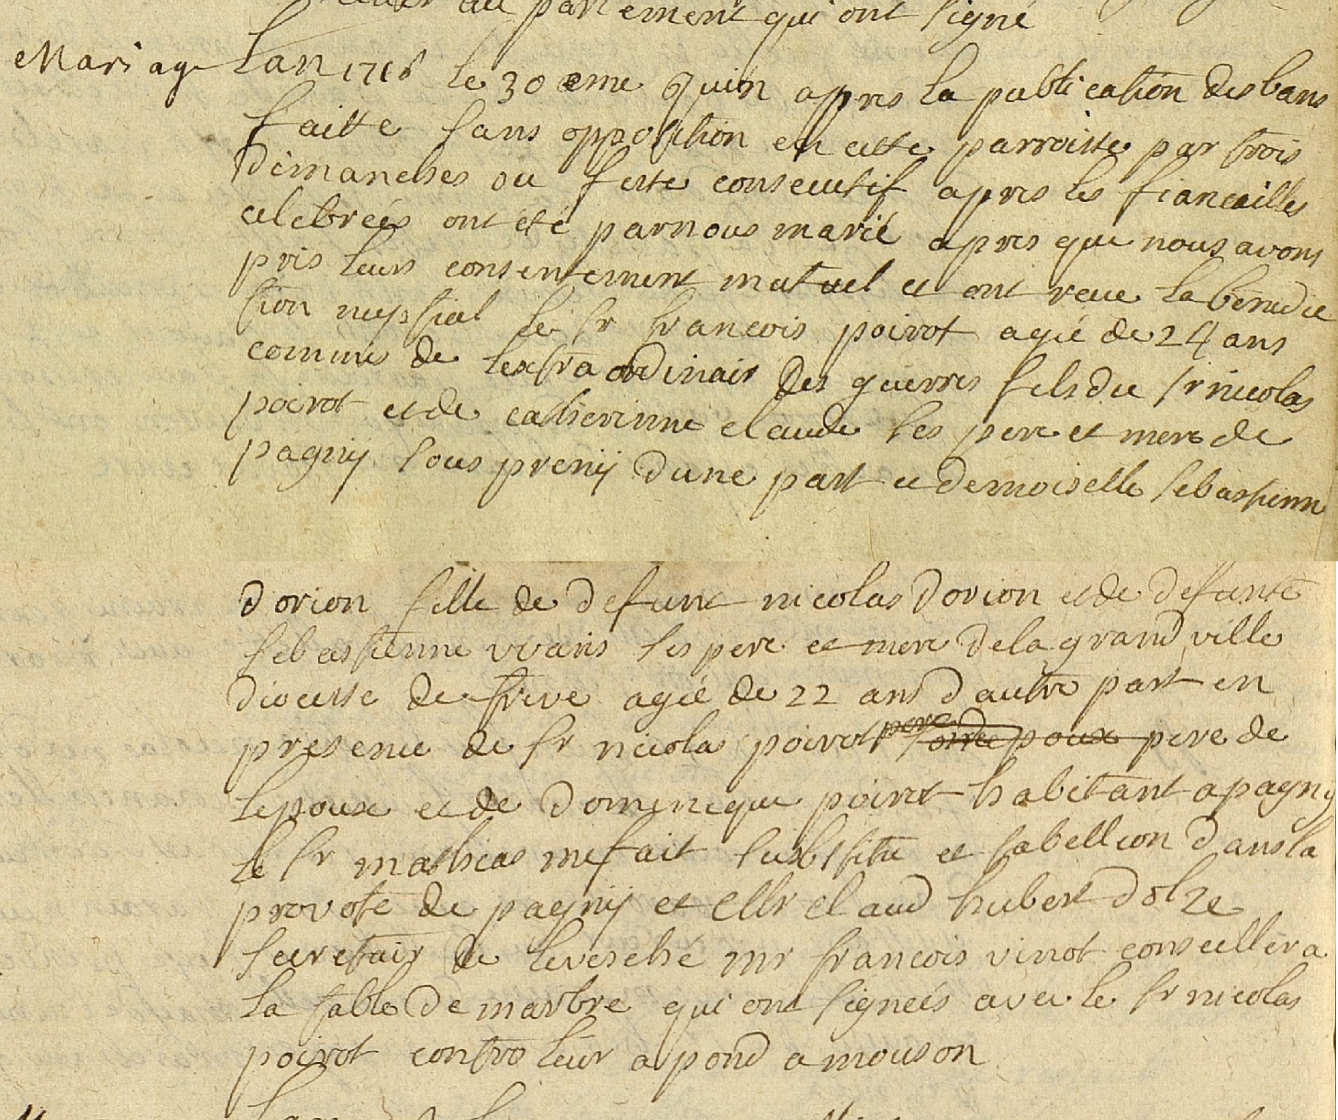 au parlement qui ont signé
Mariage Lan 1718 le 30 eme Juin apres la publication des bans
faitte sans opposition en cette parroisse par trois
dimanches ou feste consecutif apres les fiancailles
celebreés ont été par nous marié apres que nous avons
pris leurs consentement mutuel et ont receu la benedic
tion nuptial le sr francois poirot agié de 24 ans
commis de lextraordinair des guerres fils du sr nicolas
poirot et de catherinne claude ses pere et mere de
pagnÿ sous prenÿ dune part et demoiselle sebastienne
dorion fille de defunt nicolas dorion et de defunte
sebastienne ses pere et mere de la grand ville
diocesse de treve agié de 22 ans dautre part en
presence de sr nicolas poirot pere de
lepoux et de domenique poirot habitant a pagnÿ
le sr mathias substitu et tabellion dans la
provote de pagnÿ et claud hubert dolze
secretair de levesché mr francois vinot conseiller a
la table de marbre qui ont signeés avec le sr nicolas
poirot controleur a pond a mouson